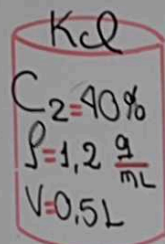 KCl
C₂=40%
ρ=1,2 g/mL
V=0,5L